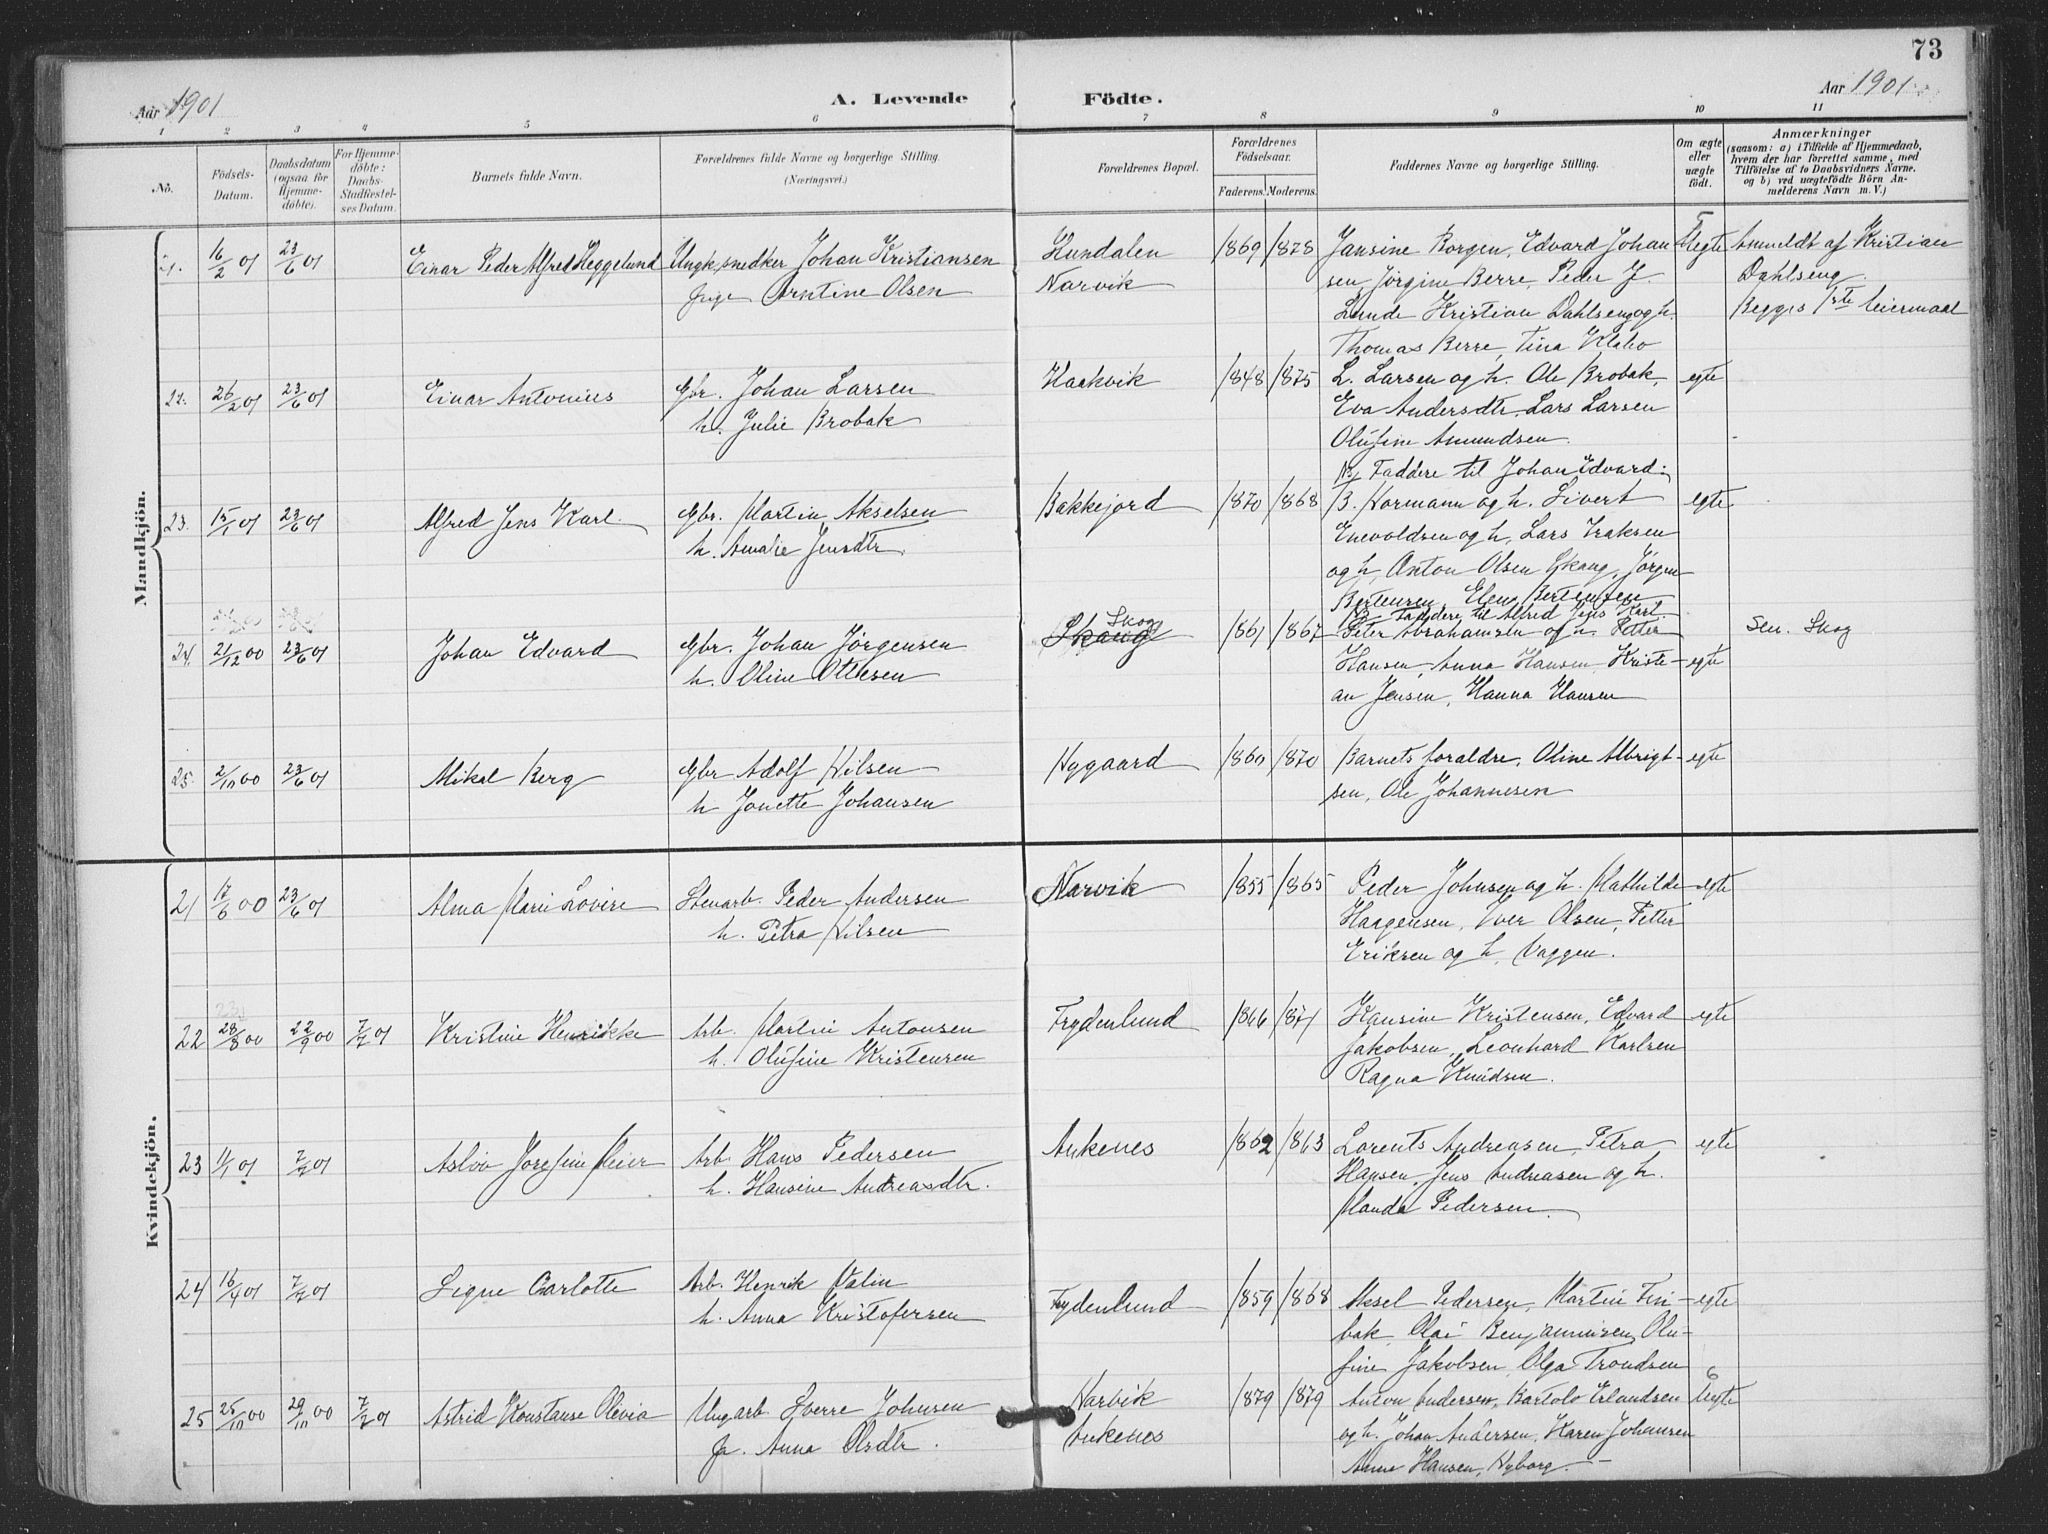 73
Aar 1901
A. Levende Födte.
Aar 1901
1 2 3 4 5 6 7 8 9 10 11
No.
Födsels-Datum.
Daabsdatum (ogsaa for Hjemme-döbte).
For Hjemme-döbte: Daabs-Stadfæstel-ses Datum.
Barnets fulde Navn.
Forældrenes fulde Navne og borgerlige Stilling.
(Næringsvei.)
Forældrenes Bopæl.
Forældrenes Födselsaar.
Faderens. Moderens.
Faddernes Navne og borgerlige Stilling.
Om ægte eller uægte födt.
Anmærkninger
(saasom: a) i Tilfælde af Hjemmedaab, hvem der har forrettet samme, med Tilföielse af to Daabsvidners Navne. og b) ved uægtefödte Börn An-melderens Navn m. V.)
Mandkjön.
21. 16/2 01 23/6 01 Einar Peder Alfred Heggelund Ungk. snedker Johan Kristiansen Kundalen 1869 1878 Jansine Borgen, Edvard Johan Uegte Anmeldt af Kristian
Pige Arntine Olsen Narvik sen, Jörgine Berre, Peder J. Dahlseng.
Lunde Kristian Dahlseng og h. Begges 1ste Leiermaal
Thomas Berre, Tina Klabo
22. 26/2 01 23/6 01 Einar Antonius Gbr. Johan Larsen Haakvik 1848 1875 L. Larsen og h. Ole Brobak, egte
h. Julie Brobak Eva Andersdtr. Lars Larsen
Olufine Amundsen.
Faddere til Johan Edvard:
23. 15/1 01 23/6 01 Alfred Jens Karl. Gbr. Martin Akselsen Bakkejord 1870 1868 B. Normann og h. Sivert egte
h. Amalie Jensdtr. Enevoldsen og h, Lars Isaksen
og h, Anton Olsen Skaug, Jörgen
Bertensen, Elen Bertensen
Faddere til Alfred Jens Karl
24. 21/12 00 23/6 01 Johan Edvard Gbr. Johan Jörgensen Skaug Skog 1861 1867 Peter Abrahamsen og h. Petter Sen. Skog
h. Oline Ottesen Hansen, Anna Hansen, Kristi- egte
an Jensen, Hanna Hansen
25. 2/10 00 23/6 01 Mikal Berg Gbr Adolf Nilsen Nygaard 1860 1870 Barnets foraldre, Oline Albrigt- egte
h Jonette Johansen sen, Ole Johannesen
Kvindekjön.
21 17/6 00 23/6 01 Alma Marie Lovise Stenarb. Peder Andersen Narvik 1855 1865 Peder Johnsen og h. Mathilde egte
h. Petra Nilsen Haagensen, Iver Olsen, Petter
Eriksen og h, Vaggen.
22 28/8 00 22/9 00 7/7 01 Kristine Henrikke Arb. Martin Antonsen Frydenlund 1866 1871 Hansine Kristensen, Edvard egte
h. Olufine Kristensen Jakobsen, Leonhard Karlsen
Ragna Knudsen.
23 11/1 01 7/7 01 Aslög Josefine Meier Arb. Hans Pedersen Ankenes 1862 1863 Lorents Andreasen, Petra egte
h. Hansine Andreasdtr. Hansen, Jens Andreasen og h.
Manda Pedersen.
24 16/4 01 7/7 01 Signe Carlotte Arb. Henrik Malin Frydenlund 1859 1868 Aksel Pedersen, Martin Fin- egte
h. Anna Kristofersen bak, Olai Benjaminsen, Olu-
fine Jakobsen, Olga Trondsen
25 25/10 00 29/10 00 7/7 01 Astrid Konstanse Olevia Ung arb. Sverre Johnsen Narvik 1879 1879 Anton Andersen, Bartolo Erlandsen Uegte
Pi. Anna Olsdtr. Ankenes og h. Johan Andersen, Karen Johansen
Anna Hansen, Nyborg.